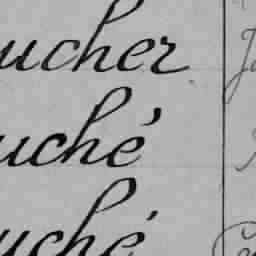 ucher
uché
uché